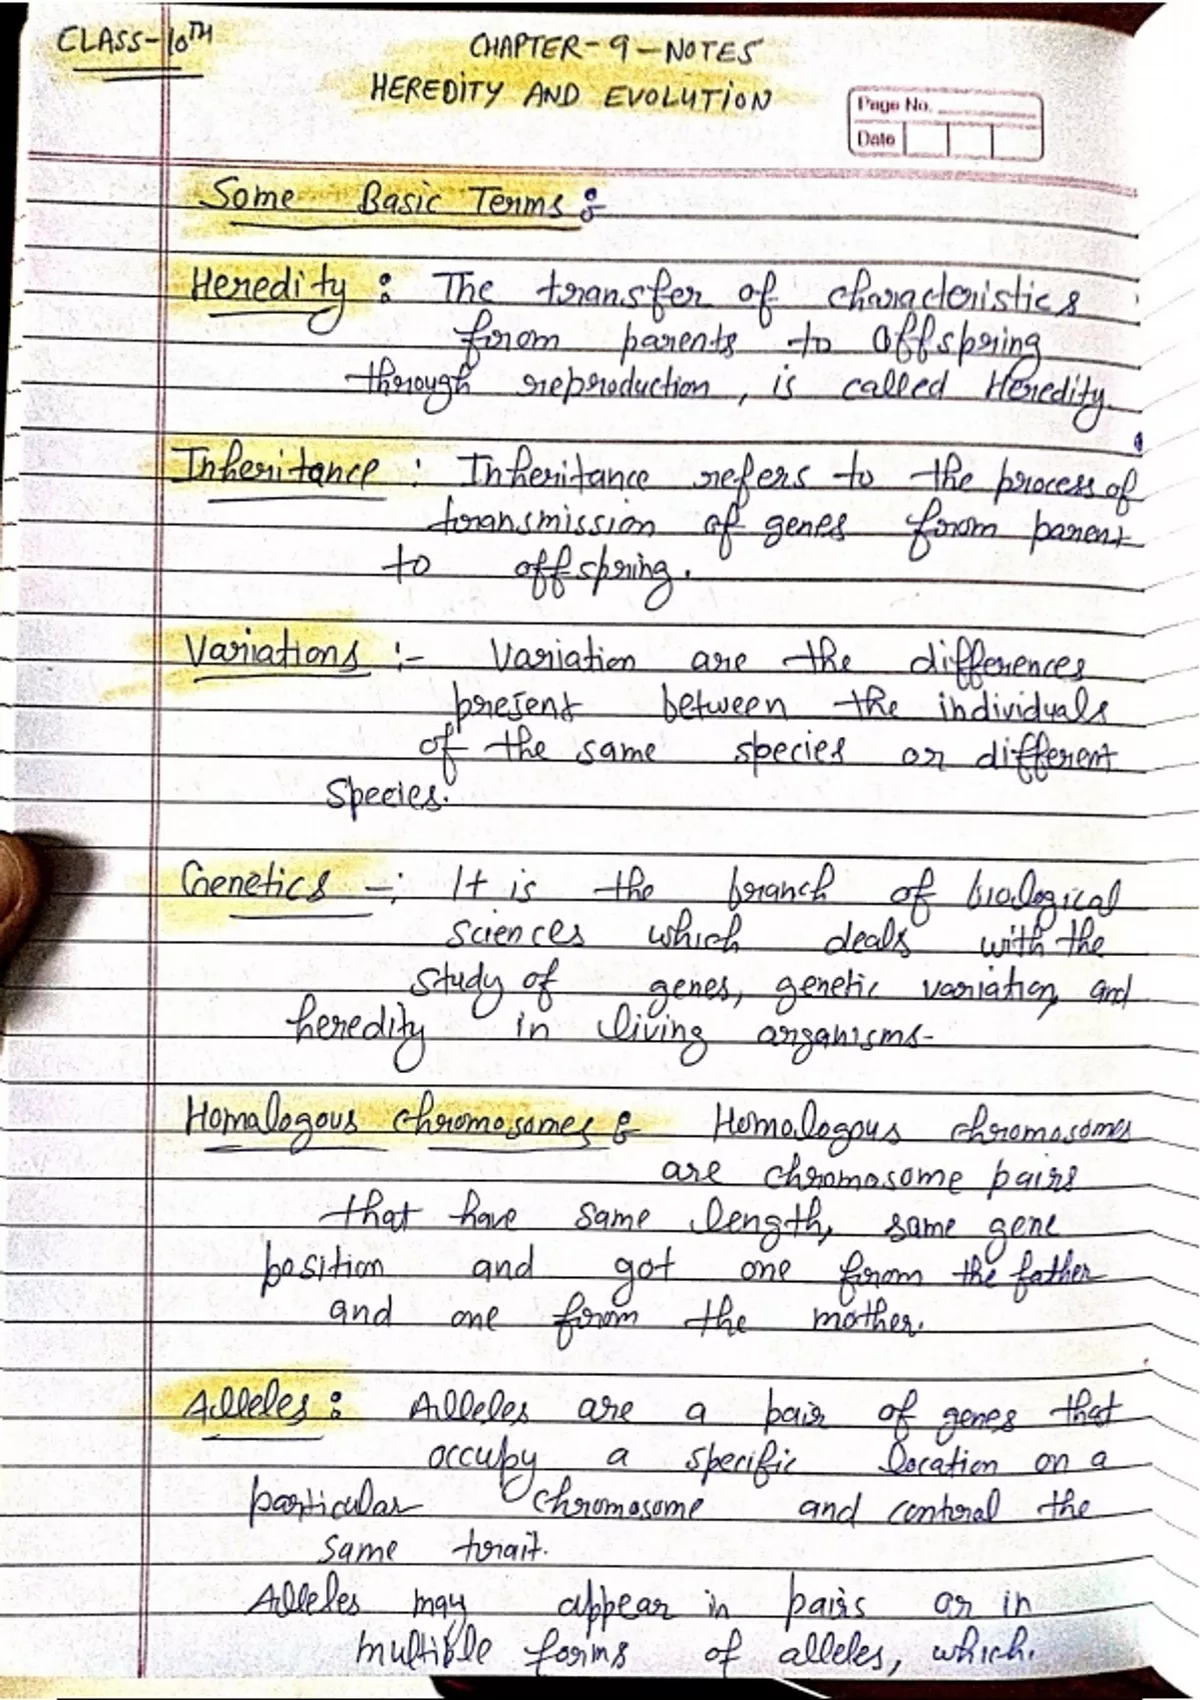 CLASS-10TH
CHAPTER-9-NOTES
HEREDITY AND EVOLUTION
Page No.
Date
Some Basic Terms :-
Heredity : The transfer of characteristics
from parents to offspring
through reproduction, is called Heredity.
Inheritance : Inheritance refers to the process of
transmission of genes from parent
to offspring.
Variations :- Variation are the differences
present between the individuals
of the same species or different
Species.
Genetics -: It is the branch of biological
sciences which deals with the
study of genes, genetic variation, and
heredity in living organisms-
Homologous chromosomes :- Homologous chromosomes
are chromosome pairs
that have same length, same gene
position and got one from the father
and one from the mother.
Alleles : Alleles are a pair of genes that
occupy a specific location on a
particular chromosome and control the
same trait.
Alleles may appear in pairs or in
multiple forms of alleles, which.